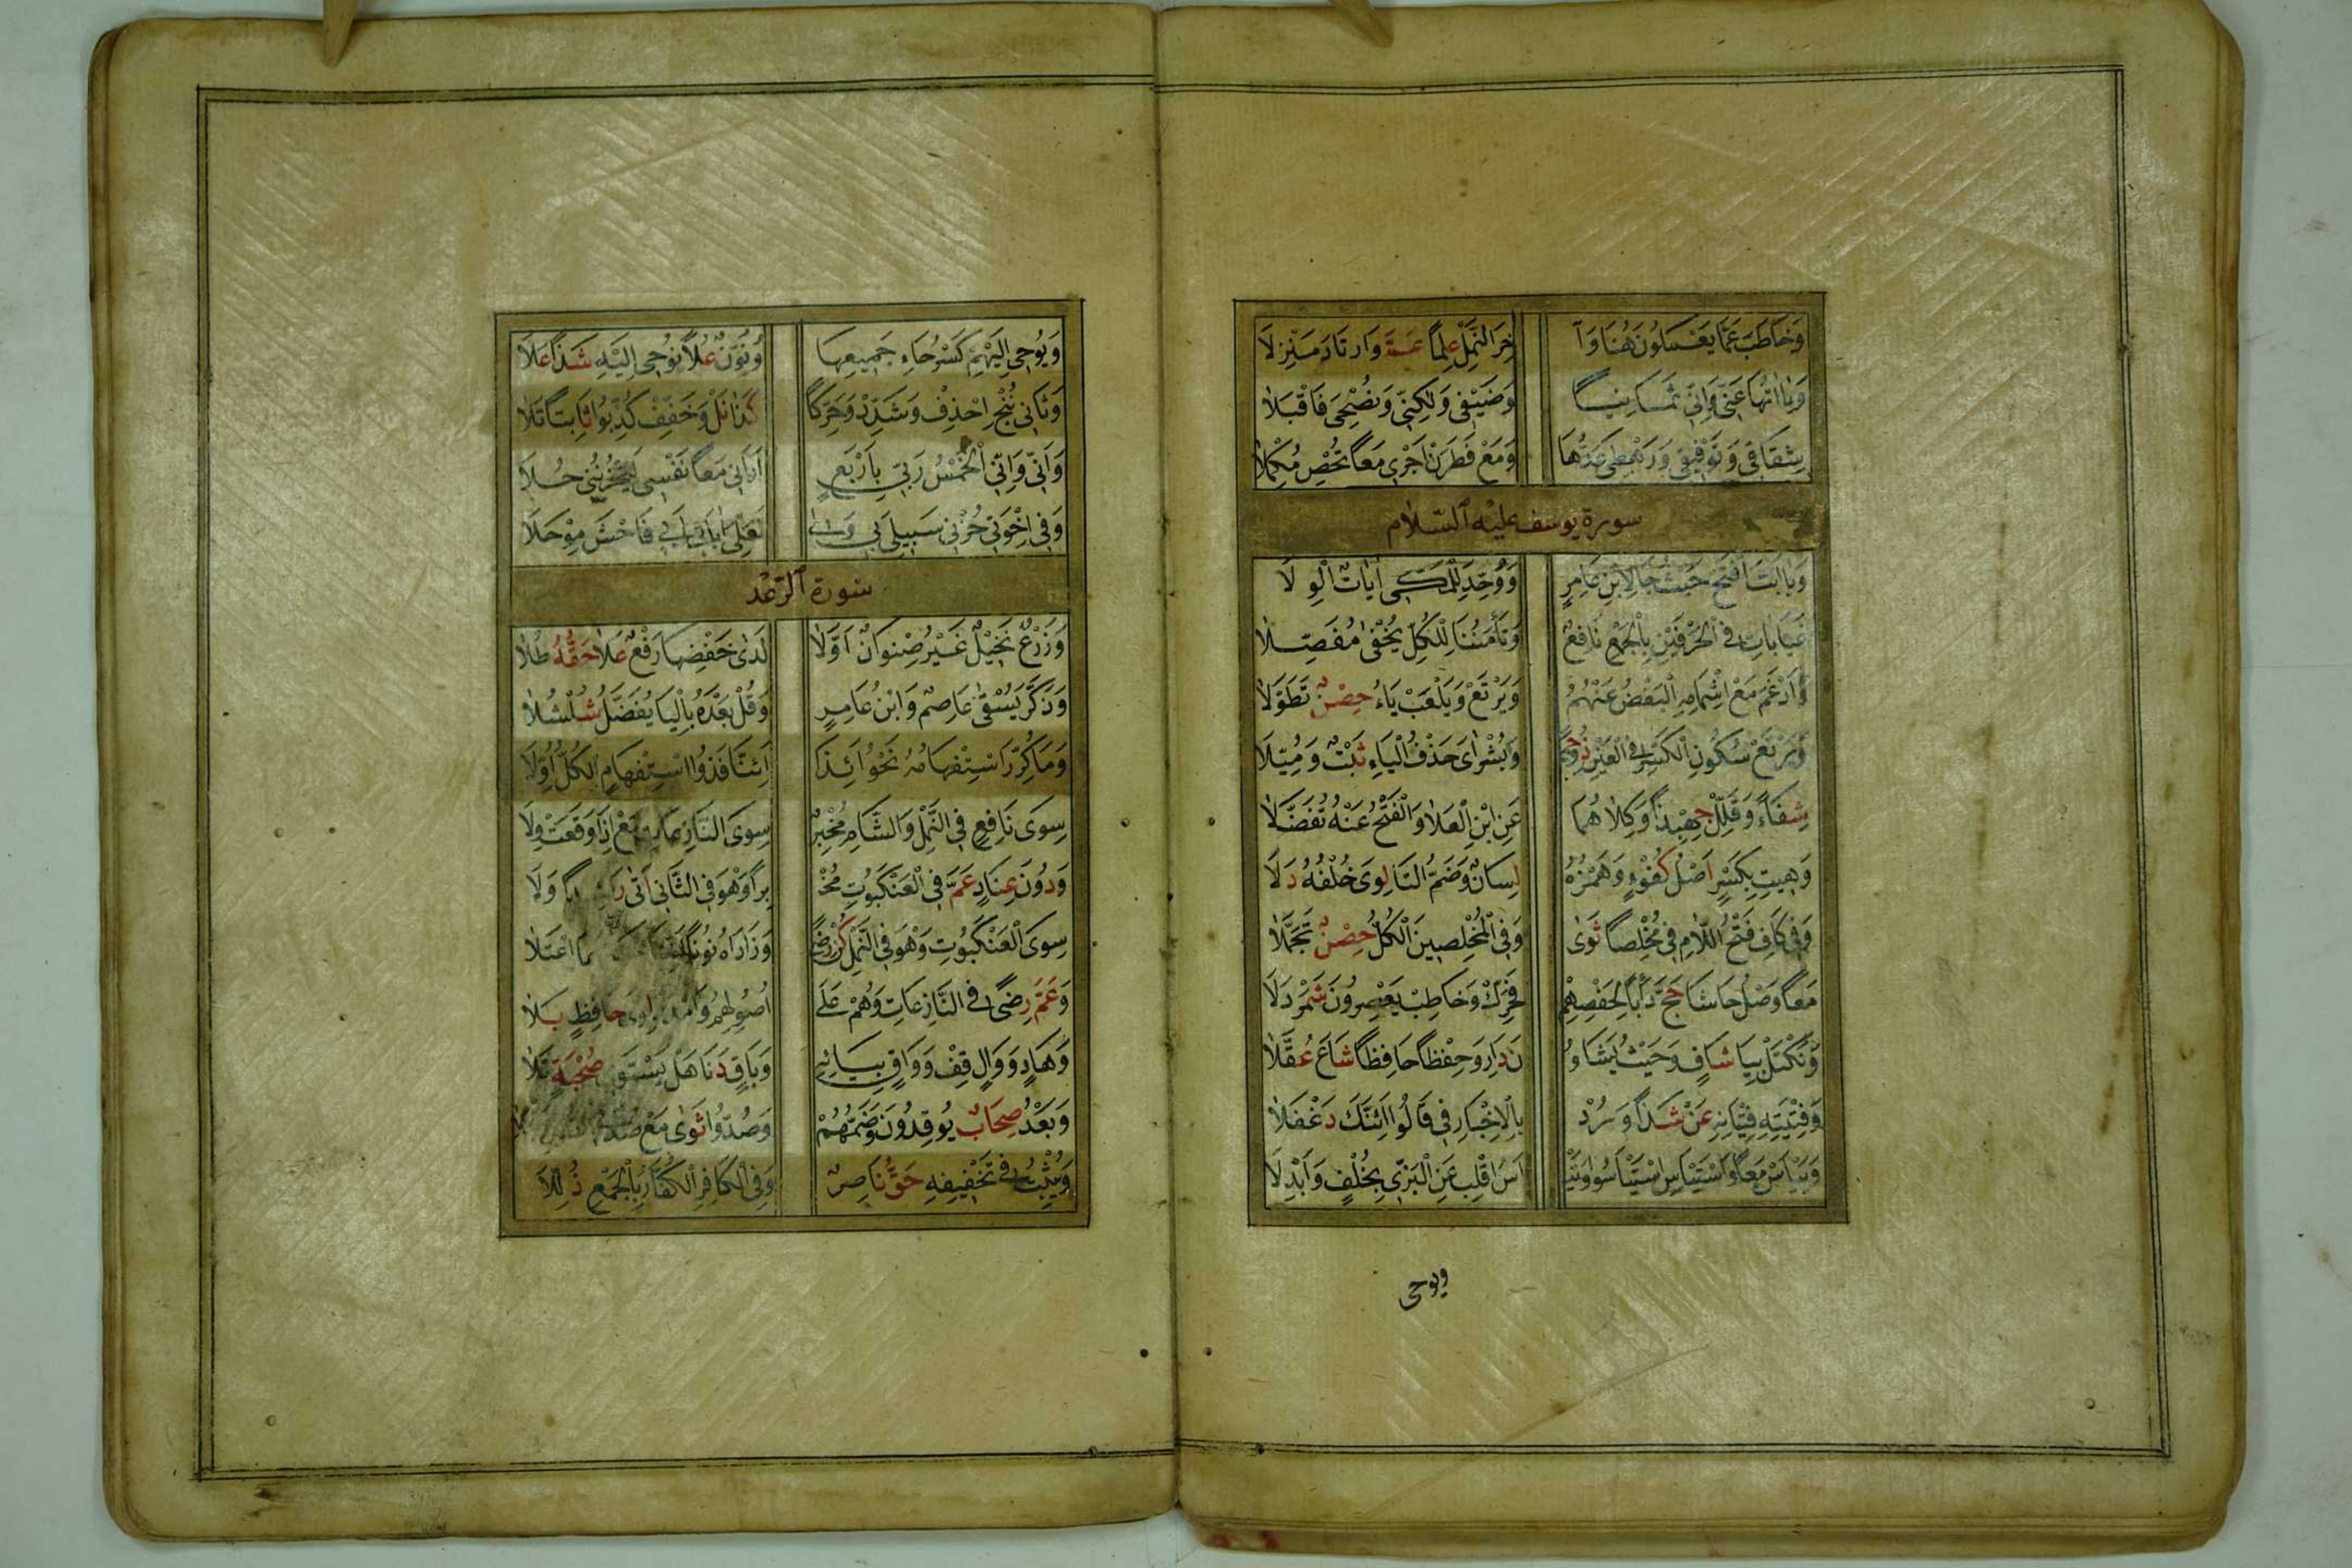 وَخَاطَبَ عَمَّا يَعْمَلُونَ هُنَا وَآ خِرَ النَّمْلِ عِلْمًا عَمَّ وَارْتَادَ مَنْزِلَا
وَيَاآتُهَا عَنِّي وَإِنِّي ثَمَانِيًا وَضَيْفِي وَلٰكِنِّي وَنُصْحِيَ فَاقْبَلَا
شِقَاقِي وَتَوْفِيقِي وَرَهْطِي عُدَّهَا وَمَعْ فَطَرَنْ أَجْرِي مَعًا تُحْصِ مُكْمِلَا
سورة يوسف عليه السلام
وَيَا أَبَتِ افْتَحْ حَيْثُ جَا لِابْنِ عَامِرٍ وَوُحِّدَ لِلْمَكِّي آيَاتٌ الْوِلَا
غَيَابَاتِ فِي الْحَرْفَيْنِ بِالْجَمْعِ نَافِعٌ وَتَأْمَنُنَا لِلْكُلِّ يُخْفَى مُفَصَّلَا
وَأَدْغَمَ مَعْ إِشْمَامِهِ الْبَعْضُ عَنْهُمُ وَيَرْتَعْ وَيَلْعَبْ يَاءُ حِصْنٌ تَطَوَّلَا
وَيَرْتَعْ سُكُونُ الْكَسْرِ فِي الْعَيْنِ ذُو حِمًى وَبُشْرٰىَ حَذْفُ الْيَاءِ ثَبْتٌ وَمُيِّلَا
شِفَاءً وَقَلِّلْ جِهْبِذًا وَكِلَاهُمَا عَنِ ابْنِ الْعَلَا وَالْفَتْحُ عَنْهُ تَفَضَّلَا
وَهِيتَ بِكَسْرٍ أَصْلُ كُفْوءٍ وَهَمْزُهُ لِسَانٌ وَضَمُّ التَّا لِوَى خُلْفُهُ دَلَا
وَفِي كَافَ فَتْحُ اللَّامِ فِي مُخْلِصًا ثَوَى وَفِي الْمُخْلِصِينَ الْكُلُّ حِصْنٌ تَجَمَّلَا
مَعًا وَصْلُ حَاشَا حَجَّ دَأْبًا لِحَفْصِهِمْ فَحَرِّكْ وَخَاطِبْ يَعْصِرُونَ شَمَرْدَلَا
وَنَكْتَلْ بِيَا شَافٍ وَحَيْثُ يَشَاءُ نُو نُ دَارٍ وَحِفْظًا حَافِظًا شَاعَ عُقَّلَا
وَفِتْيَتِهِ فِتْيَانِهِ عَنْ شَذًا وَرُدْ بِالْإِخْبَارِ فِي قَالُوا أَئِنَّكَ دَغْفَلَا
وَيَيْأَسْ مَعًا وَاسْتَيْأَسَ اسْتَيْأَسُوا وَتَيْ أَسُ اقْلِبْ عَنِ الْبَزِّي بِخُلْفٍ وَأَبْدِلَا
ويوحى
وَيُوحِي إِلَيْهِمْ كَسْرُ حَاءِ جَمِيعِهَا وَنُونٌ عُلًا يُوحِي إِلَيْهِ شَذًا عَلَا
وَثَانِيَ نُنْجِ احْذِفْ وَشَدِّدْ وَحَرِّكًا كَذَا نَلْ وَخَفِّفْ كُذِّبُوا ثَابِتًا تَلَا
وَأَنِّي وَإِنِّي الْخَمْسُ رَبِّي بِأَرْبَعٍ أَرَانِي مَعًا نَفْسِي لَيَحْزُنُنِي حُلَا
وَفِي إِخْوَتِي حُزْنِي سَبِيلِي بِي وَلِي لَعَلِّي آبَائِي أَبِي فَاخْشَ مَوْحَلَا
سورة الرعد
وَزَرْعٌ نَخِيلٌ غَيْرُ صِنْوَانٍ أَوَّلَا لَدَى خَفْضِهَا رَفْعٌ عَلَا حَقُّهُ طُلَا
وَذَكَّرَ يُسْقَى عَاصِمٌ وَابْنُ عَامِرٍ وَقُلْ بَعْدَهُ بِالْيَا يُفَضِّلُ شُلْشُلَا
وَمَا كُرِّرَ اسْتِفْهَامُهُ نَحْوُ آئِذَا أَئِنَّا فَذُو اسْتِفْهَامٍ الْكُلُّ أَوَّلَا
سِوَى نَافِعٍ فِي النَّمْلِ وَالشَّامِ مُخْبِرٌ سِوَى النَّازِعَاتِ مَعْ إِذَا وَقَعَتْ وِلَا
وَدُونَ عِنَادٍ عَمَّ فِي الْعَنْكَبُوتِ مُخْ بِرًا وَهْوَ فِي الثَّانِي أَتَى رَاشِدًا وَلَا
سِوَى الْعَنْكَبُوتِ وَهْوَ فِي النَّمْلِ كُنْ رِضًا وَزَادَاهُ نُونًا اعْتَلَا
وَعَمَّ رِضًى فِي النَّازِعَاتِ وَهُمْ عَلَى أُصُولِهِمُ وَامْدُدْ لِوَى حَافِظٍ بَلَا
وَهَادٍ وَوَالٍ قِفْ وَوَاقٍ بِيَائِهِ وَبَاقٍ دَنَا هَلْ يَسْتَوِي صُحْبَةٌ تَلَا
وَبَعْدُ صِحَابٌ يُوقِدُونَ وَضَمُّهُمْ وَصُدُّوا ثَوَى مَعْ صُدَّ
وَيُثْبِتُ فِي تَخْفِيفِهِ حَقُّ نَاصِرٍ وَفِي الْكَافِرُ الْكُفَّارُ بِالْجَمْعِ ذُلِّلَا